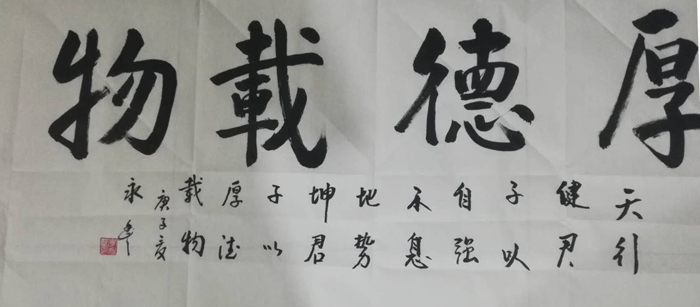 厚德載物
天行
健君
子以
自强
不息
地势
坤君
子以
厚德
载物
庚子夏
永年